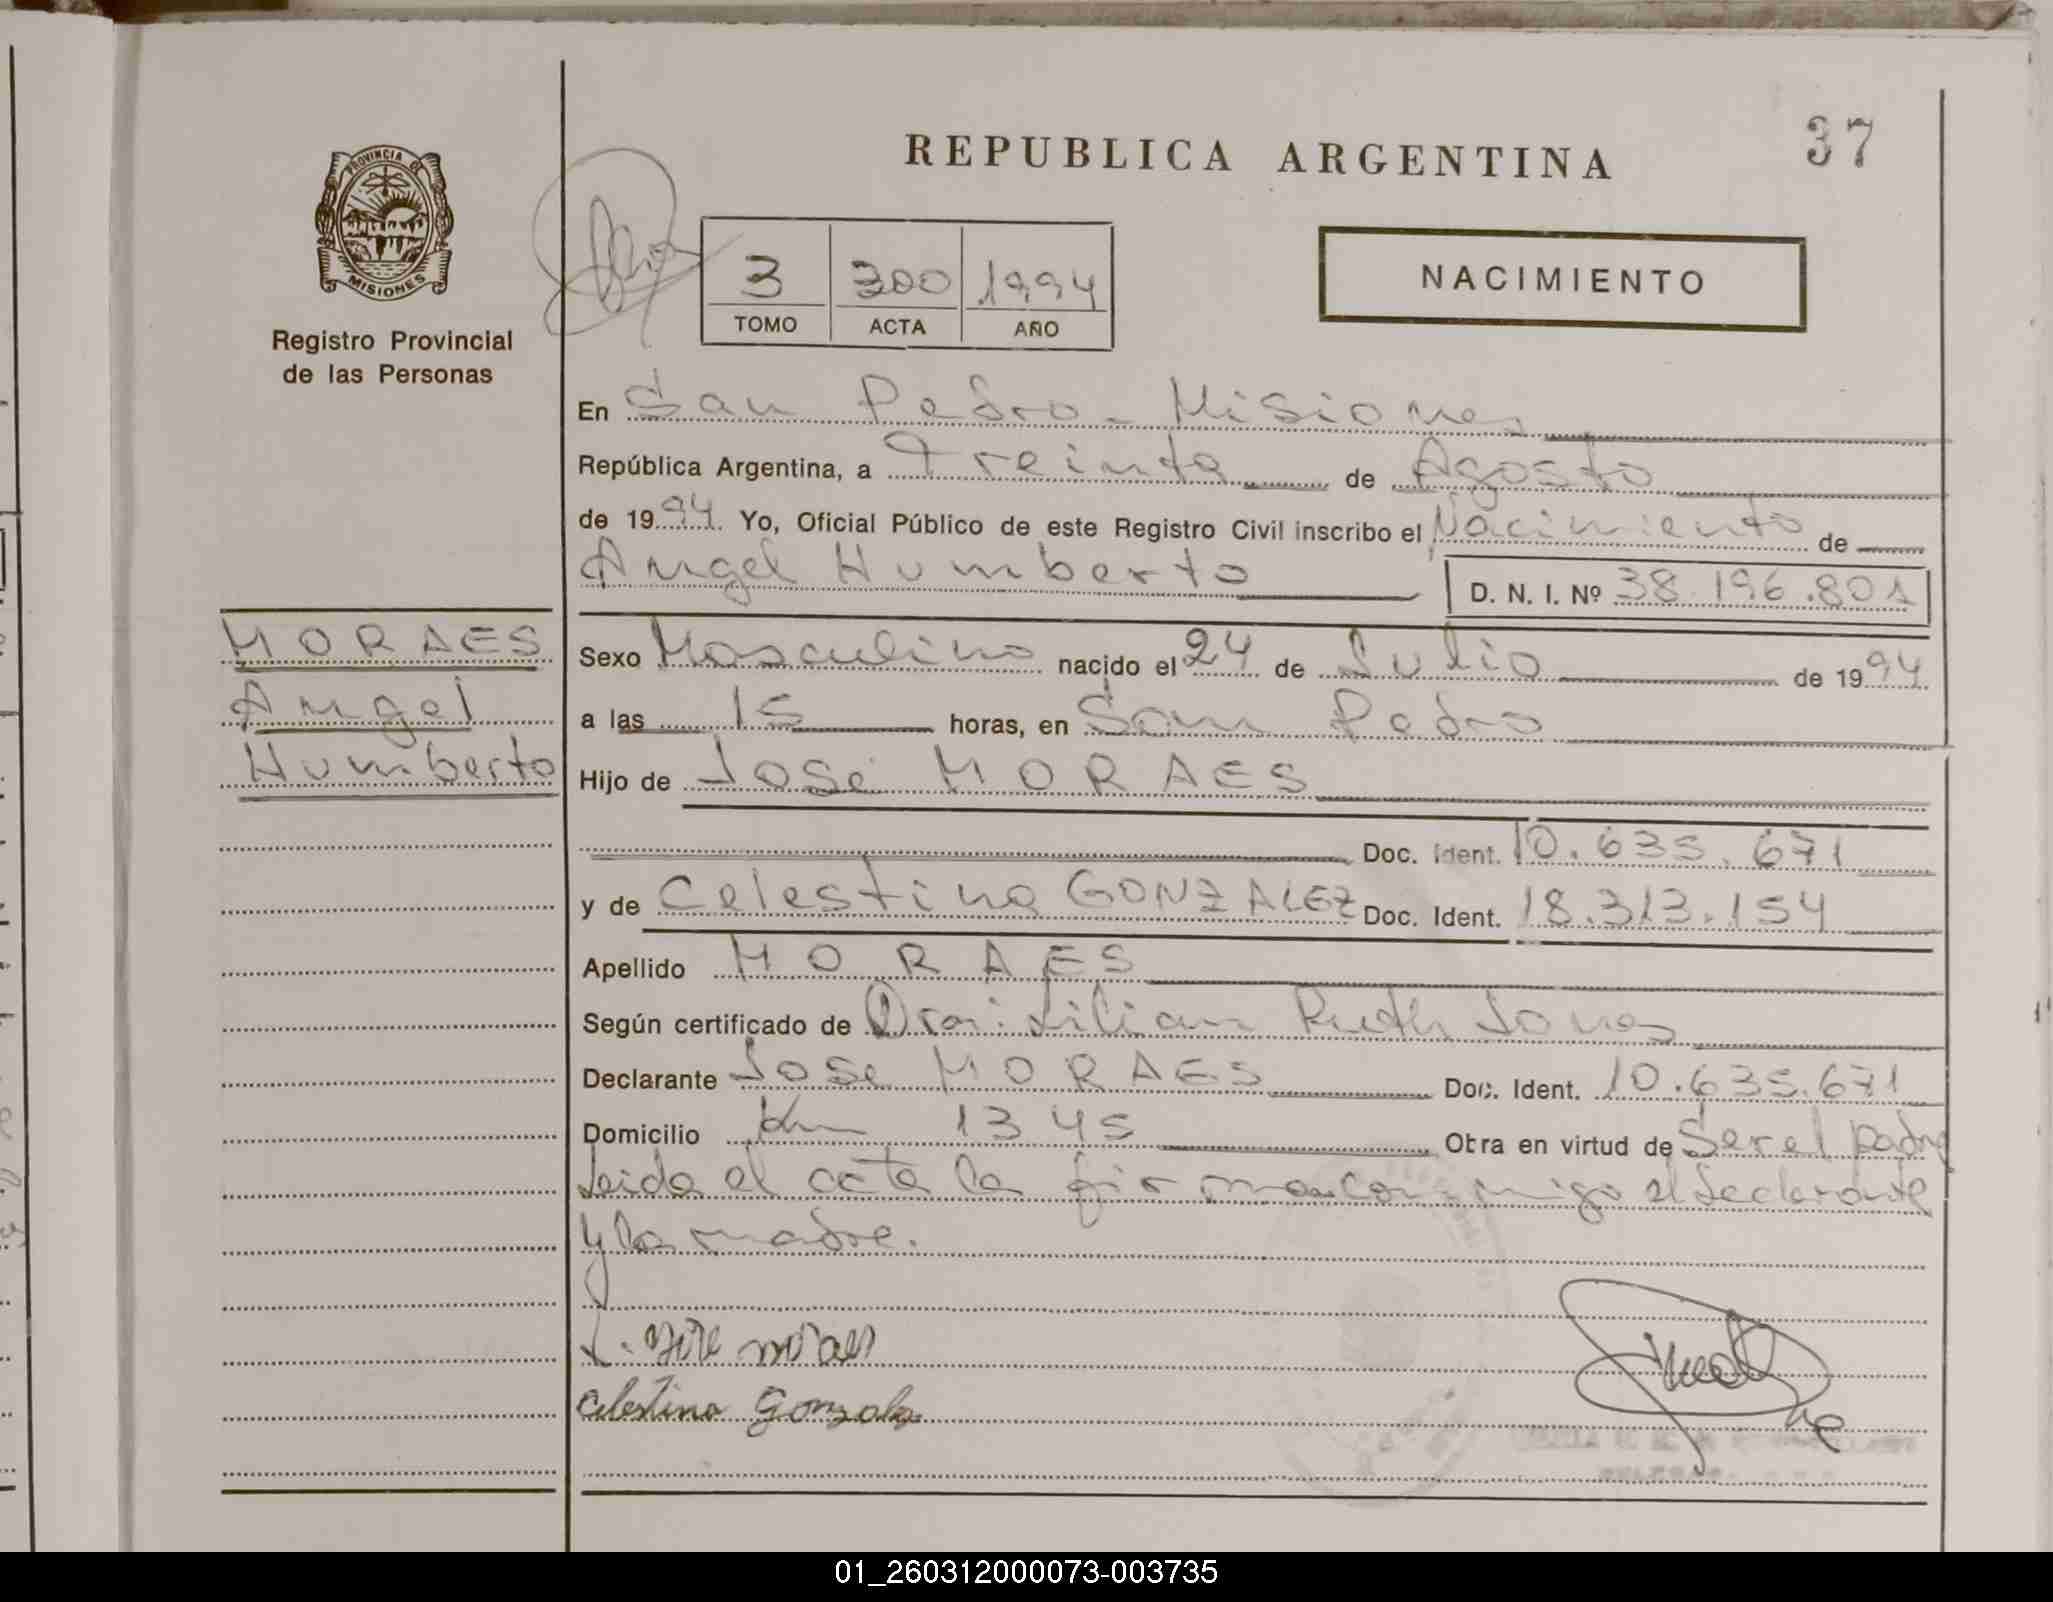 37
REPUBLICA ARGENTINA
PROVINCIA DE
MISIONES
Registro Provincial
de las Personas
3 300 1994
TOMO ACTA AÑO
NACIMIENTO
En San Pedro - Misiones
República Argentina, a Treinta de Agosto
de 1994 Yo, Oficial Público de este Registro Civil inscribo el Nacimiento de
Angel Humberto D. N. I. Nº 38.196.801
MORAES
Angel
Humberto
Sexo Masculino nacido el 24 de Julio de 1994
a las 15 horas, en San Pedro
Hijo de José MORAES
Doc. Ident. 10.635.671
y de Celestina GONZALEZ Doc. Ident. 18.313.154
Apellido MORAES
Según certificado de Dra: Lilian Ruth Jones
Declarante Jose MORAES Doc. Ident. 10.635.671
Domicilio Km 1345 Obra en virtud de Ser el padre
Leida el acta la firman conmigo el declarante
y la madre.
Jose moraes
Celestina Gonzalez
01_260312000073-003735